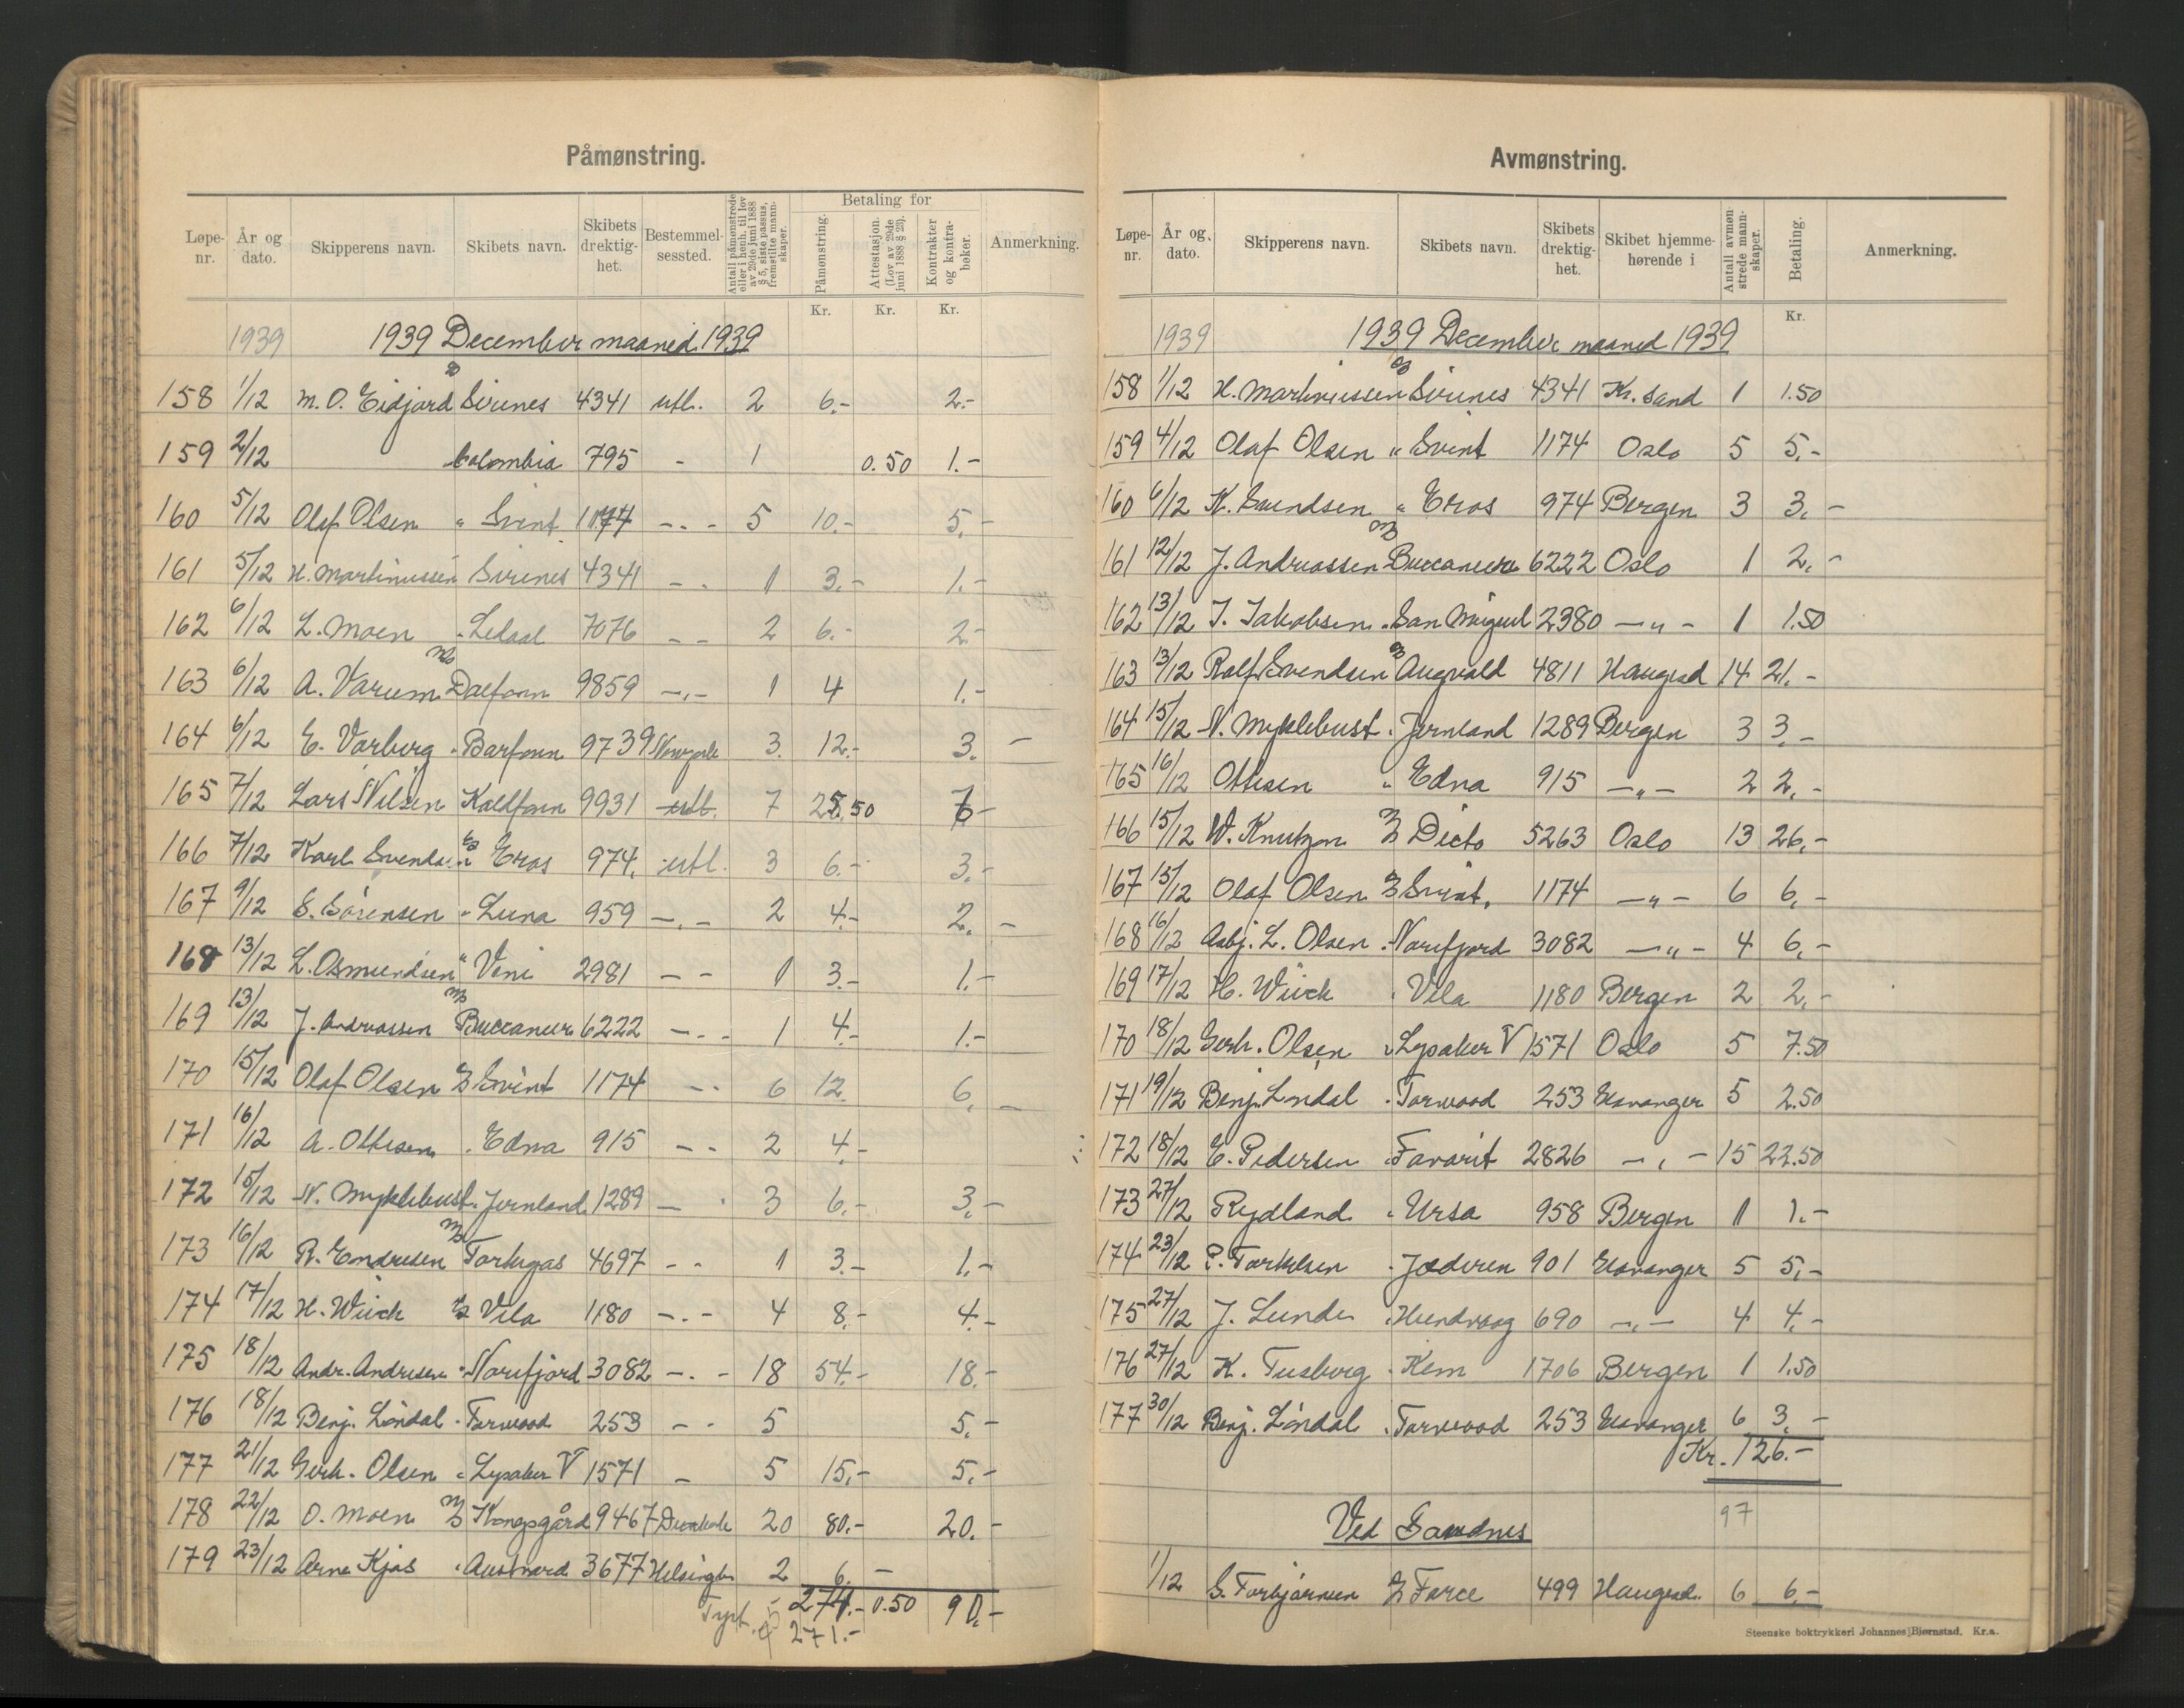 Påmønstring.
Løpe-nr. År og dato. Skipperens navn. Skibets navn. Skibets drektig-het. Bestemmel-sessted. Antall påmønstrede eller i henh. til lov av 29de juni 1888 § 5, siste passus, fremstilte mann-skaper. Betaling for Påmønstring. Attestasjon. (Lov av 29de juni 1888 § 23). Kontrakter og kontra-bøker. Anmerkning.
Kr. Kr. Kr.
1939 1939 December maaned 1939
158 1/12 M. O. Eidjord Sirenes 4341 utl. 2 6.- 2.-
159 2/12 Colombia 795 - 1 0.50 1.-
160 5/12 Olaf Olsen " Svint 1174 - - - 5 10.- 5.-
161 5/12 H. Martinussen Sirenes 4341 - - 1 3.- 1.-
162 6/12 L. Moen " Ledaal 7076 - - 2 6.- 2.-
163 6/12 A. Varum Dalfonn 9859 -.- 1 4 1.-
164 6/12 E. Vorberg " Barfonn 9739 3. 12.- 3. -
165 7/12 Lars Nilsen Kaldfonn 9931 utl. 7 25.50 7-
166 7/12 Karl Svends.n Eros 974. utl. 3 6.- 3.-
167 9/12 S. Sørensen " Luna 959 -.- 2 4.- 2. -
168 13/12 L. Osmundsen " Veni 2981 - - 1 3.- 1.-
169 13/12 J. Andreassen Buccaneer 6222 - - - 1 4.- 1.-
170 15/12 Olaf Olsen Svint 1174 - - 6 12. 6. -
171 16/12 A. Ottesen . Edna 915 - - 2 4.-
172 15/12 N. Myklebust . Jernland 1289 - - 3 6.- 3.-
173 16/12 R. Endresen Torbugas 4697 - - 1 3.- 1.-
174 17/12 H. Wiick Vela 1180 -.- 4 8.- 4.-
175 18/12 Andr. Andresen " Norefjord 3082 -.- 18 54.- 18.-
176 18/12 Benj. Lindal . Torwood 253 - - 5 5.-
177 21/12 Gerh. Olsen " Lysaker V 1571 - 5 15.- 5.-
178 22/12 O. Moen Kongsgård 9467 20 80.- 20.-
179 23/12 Arne Kjos . Austvard 3677 2 6. -
274.- 0.50 90.-
271.-
Avmønstring.
Løpe-nr. År og dato. Skipperens navn. Skibets navn. Skibets drektig-het. Skibet hjemme-hørende i Antall avmøn-strede mann-skaper. Betaling. Anmerkning.
Kr.
1939 1939 December maaned 1939
158 1/12 H. Martinussen Sirenes 4341 Kr. sand 1 1.50
159 4/12 Olaf Olsen " Svint 1174 Oslo 5 5.-
160 6/12 K. Svendsen " Eros 974 Bergen 3 3. -
161 12/12 J. Andreassen Buccaneer 6222 Oslo 1 2. -
162 13/12 J. Jakobsen . San Miguel 2380 -"- 1 1.50
163 13/12 Ralf Svendsen Augvald 4811 Haugesd 14 21.-
164 15/12 N. Myklebust . Jernland 1289 Bergen 3 3.-
165 16/12 Ottesen " Edna 915 -"- 2 2.-
166 15/12 W. Knutzon Dicto 5263 Oslo 13 26.-
167 15/12 Olaf Olsen Svint. 1174 -"- 6 6.-
168 16/12 Asbj. L. Olsen . Norefjord 3082 -"- 4 6.-
169 17/12 H. Wiick . Vela 1180 Bergen 2 2.-
170 18/12 Gerh. Olsen " Lysaker V 1571 Oslo 5 7.50
171 19/12 Benj. Lindal . Torwood 253 Stavanger 5 2.50
172 18/12 E. Pedersen . Favorit 2826 -"- 15 22.50
173 27/12 Rydland . Ursa 958 Bergen 1 1.-
174 23/12 P. Torkelsen . Jæderen 901 Stavanger 5 5.-
175 27/12 J. Lunde . Hundvaag 690 -"- 4 4.-
176 27/12 K. Tusberg . Kem 1706 Bergen 1 1.50
177 30/12 Benj. Lindal . Torwood 253 Stavanger 6 3. -
Kr. 126.-
97
Ved Sandnes
1/12 G. Torbjørnsen Force 499 Haugesd. 6 6.-
Steenske boktrykkeri Johannes Bjørnstad. Kr.a.